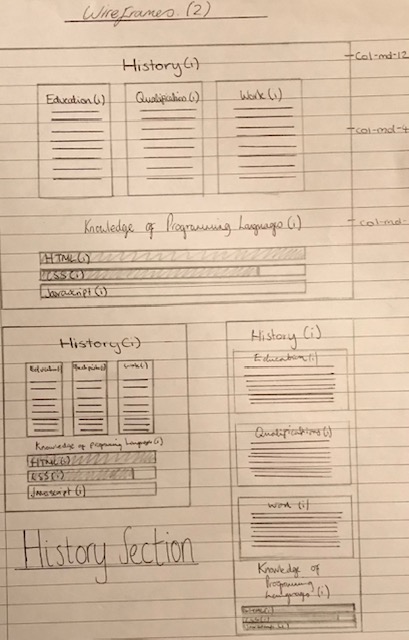 Wireframes (2)
History (i)
Col-md-12
Education (i)
Qualifications (i)
Work (i)
Col-md-4
Knowledge of Programming Languages (i)
Col-md-
HTML (i)
CSS (i)
Javascript (i)
History (i)
Education (i)
Work (i)
Knowledge of Programing Languages (i)
HTML (i)
CSS (i)
Javascript (i)
History (i)
Education (i)
Qualifications (i)
Work (i)
Knowledge of
Programming
Languages (i)
HTML (i)
CSS (i)
Javascript (i)
History Section